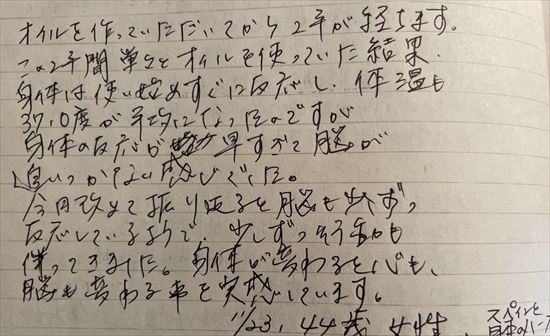 オイルを作っていただいてから2年が経ちます。
この2年間 オイルを使っていた結果.
身体は使い始めすぐに反応し、体温も
37.0度が平均になったのですが
身体の反応が 早すぎて脳が
追いつかない感じでした。
今回改めて振り返ると脳も少しずつ
反応しているようで、少しずつ も
伴ってきました。身体が変わると心も、
脳も変わる事を実感しています。
11/23. 44歳 女性.
スペインと
日本